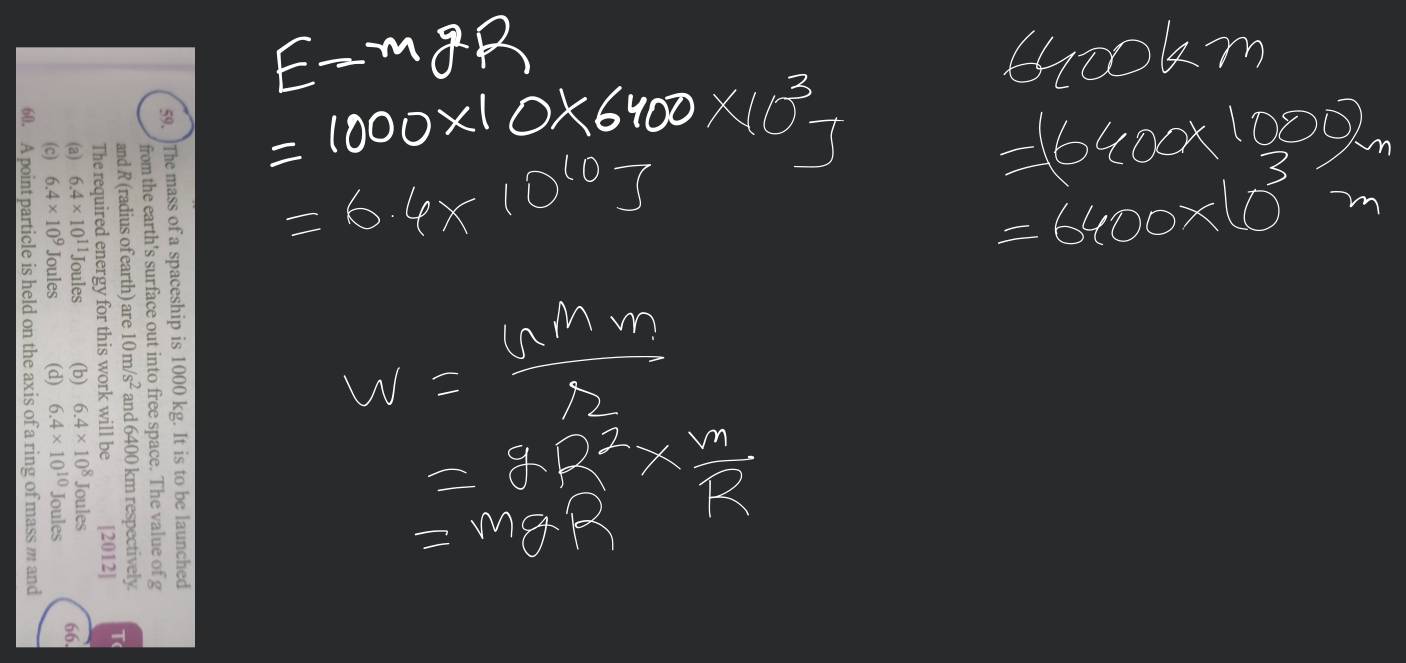 59. The mass of a spaceship is 1000 kg. It is to be launched
from the earth's surface out into free space. The value of g
and R (radius of earth) are 10 m/s² and 6400 km respectively.
The required energy for this work will be [2012]
(a) 6.4 × 10¹¹ Joules (b) 6.4 × 10⁸ Joules
(c) 6.4 × 10⁹ Joules (d) 6.4 × 10¹⁰ Joules
60. A point particle is held on the axis of a ring of mass m and
66.
E = mgR
= 1000×10×6400×10³ J
= 6.4×10¹⁰ J
W = GMm/r
= gR² × m/R
= mgR
6400km
=(6400×1000)m
=6400×10³ m